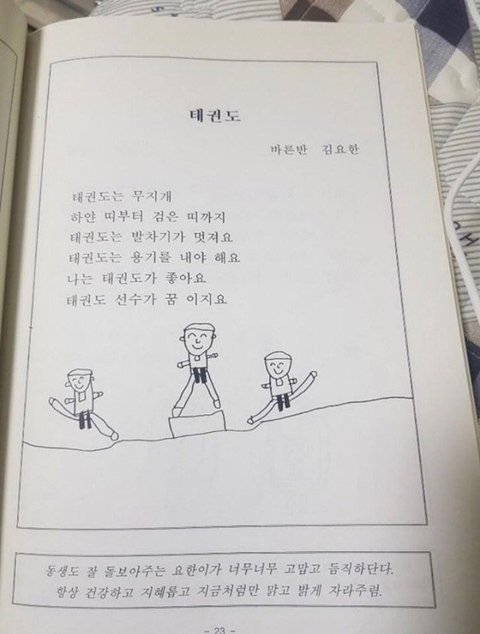 태권도
바른반 김요한
태권도는 무지개
하얀 띠부터 검은 띠까지
태권도는 발차기가 멋져요
태권도는 용기를 내야 해요
나는 태권도가 좋아요
태권도 선수가 꿈 이지요
동생도 잘 돌보아주는 요한이가 너무너무 고맙고 듬직하단다.
항상 건강하고 지혜롭고 지금처럼만 맑고 밝게 자라주렴.
- 23 -